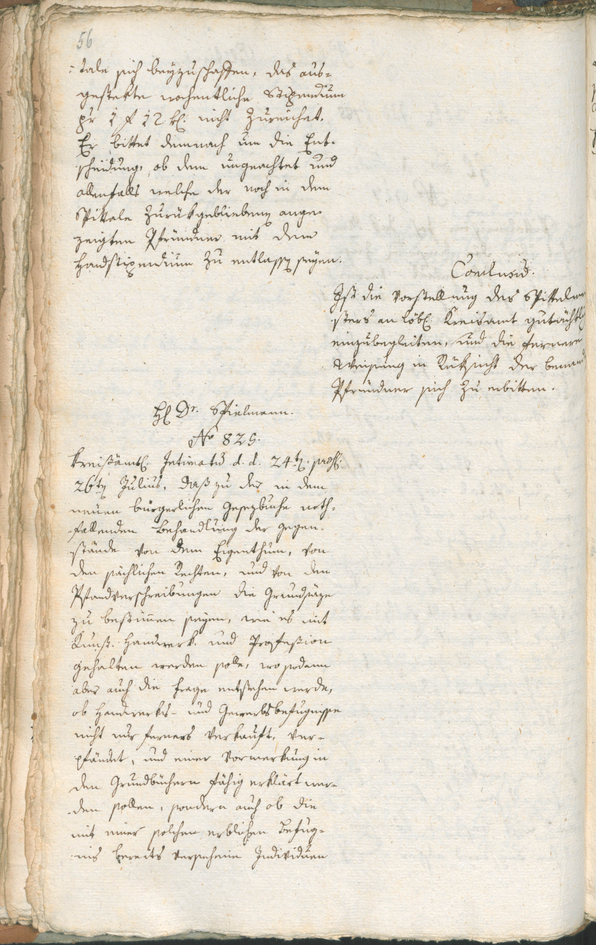 56
:tale sich beyzuschaffen, das aus=
gestekte wochentliche Stipendium
pr 1 f 12 kr. nicht zureichet.
Er bittet demnach um die Ent=
scheidung, ob dem ungeachtet und
allenfalls welche der noch in dem
Spitale zurükgebliebenen ange=
zeigten Pfründner mit dem
Handstipendium zu entlassen seyen.
Conclusum.
Ist die Vorstellung des Spitalmei
sters an Löbl. Kreisamt gutächtl
einzubegleiten, und die fernere
Weisung in Rüksicht der benannt
Pfründner sich zu erbitten.
H. Dr. Spielmann.
No 825.
Kreißämtl. Intimatum d. d. 24ten, prss.
26ten Julius, daß zu der in dem
neuen bürgerlichen Gesezbuche noth=
fallenden Behandlung der Gegen=
stände von dem Eigenthum, von
den sächlichen Rechten, und von den
Pfandverschreibungen die Grundsäze
zu bestimmen seyen, wie es mit
Kunst- Handwerk- und Profession
gehalten werden solle, wo sodann
aber auch die Frage entstehen werde,
ob Handwerks- und Gewerbsbefugnisse
nicht nur ferners verkauft, ver=
pfändet, und einer Vormerkung in
den Grundbüchern fähig erklärt wer=
den sollen, sondern auch ob die
mit einer solchen erblichen Befug=
nis bereits versehene Individuen